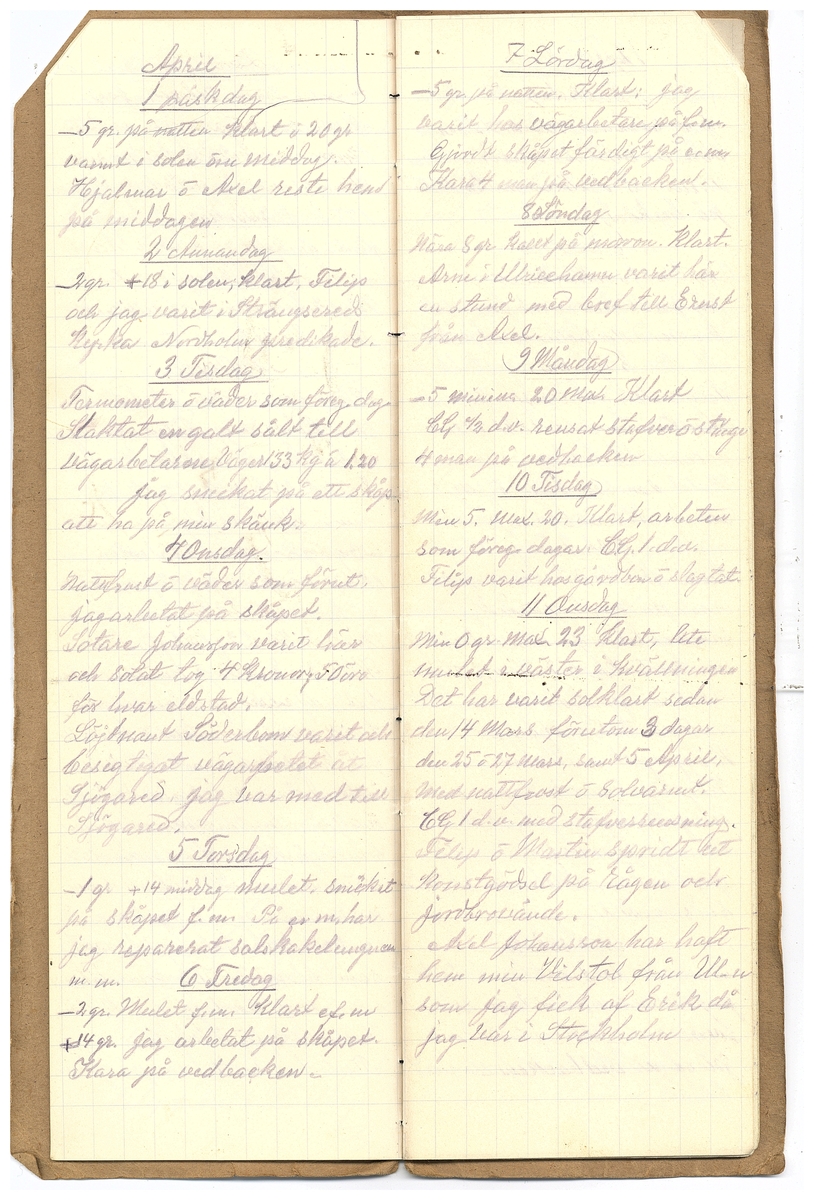 April
1 påskdag
-5 gr. på natten Klart ö 20 gr
varmt i solen öm middag.
Hjalmar ö Axel reste hem
på middagen
2 Annandag
-2 gr. +18 i solen, klart, Filip
och jag varit i Strängsered
Nordholm predikade.
3 Tisdag
Termometer ö väder som föreg. dag.
Slaktat en galt sålt till
vägarbetarne Väger 133 kg á 1,20
jag snickat på ett skåp
att ha på min skänk.
4 Onsdag.
Nattfrost ö väder som förut.
jag arbetat på skåpet.
Sotare Johansson varit här
och sotat tog 4 Kronor
för hvar eldstad.
Löjtnant Söderbom varit och
besigtigat vägarbetet åt
Sjögared. jag var med till
Sjögared.
5 Torsdag
-1 gr. +14 middag mulet. snickat
på skåpet f.m. På e.m. har
jag reparerat salskakelugnen
m.m. 6 Fredag
-2 gr. Mulet f.m. Klart e.f.m
+14 gr. jag arbetat på skåpet.
Kara på vedbacken.
7 Lördag
-5 gr. på natten. Klart: jag
varit hos vägarbetare på f.m.
Gjordt skåpet färdigt på e.m.
Kara 4 man på vedbacken.
8 Söndag
8 gr. på moron. Klart.
Arne i Ulricehamn varit här
en stund med bref till Ernst
från Axel.
9 Måndag
-5 minima 20 Max. Klart
CG 1/2 d.v. rensat stafver ö stänge
4 man på vedbacken
10 Tisdag
Min 5. Max. 20. Klart, arbeten
som föreg. dagar. CG. 1 d.v.
Filip varit hos gördbon ö slagtat.
11 Onsdag
Min 0 gr. Max 23 Klart, lite
mulet i väster i kvällningen
Det har varit solklart sedan
den 14 Mars förutom 3 dagar
den 25 ö 27 Mars, samt 5 April,
Med nattfrost ö solvarmt.
CG 1 d.v. med stafverrensning.
Filip ö Martin spridt ut
Konstgödsel på Rågen och
jordbrovände.
Axel Johansson har haft
hem min Vilstol från Ul-n
som jag fick af Erik då
jag var i Stockholm